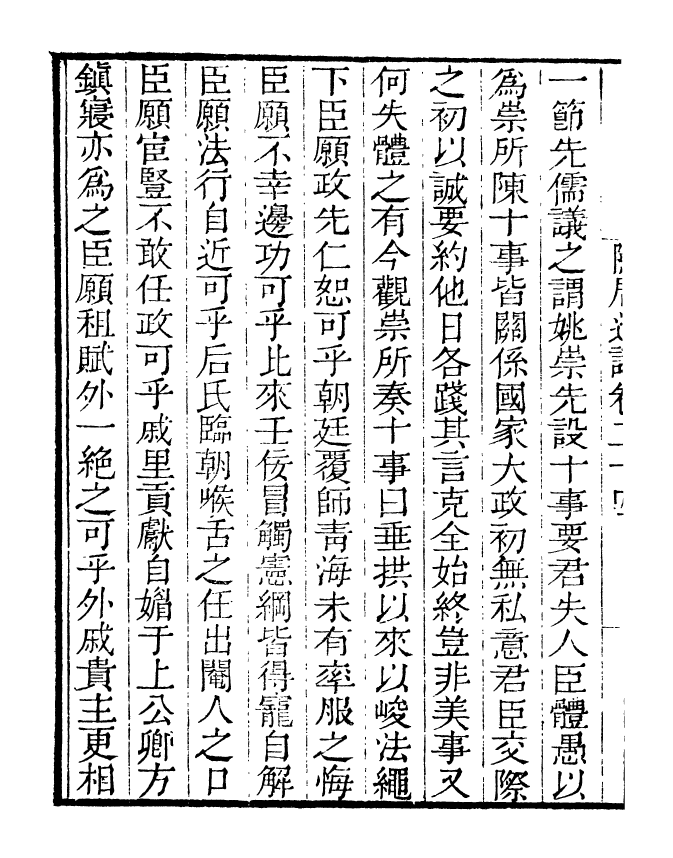 一節先儒議之謂姚崇先設十事要君失人臣體愚以
為崇所陳十事皆關係國家大政初無私意君臣交際
之初以誠要約他日各踐其言克全始終豈非美事又
何失體之有今觀崇所奏十事曰垂拱以來以峻法繩
下臣願政先仁恕可乎朝廷覆師青海未有率服之悔
臣願不幸邊功可乎比來壬佞冒觸憲綱皆得寵自解
臣願法行自近可乎后氏臨朝喉舌之任出閹人之口
臣願宦豎不敢任政可乎戚里貢獻自媚于上公卿方
鎮寢亦為之臣願租賦外一絶之可乎外戚貴主更相